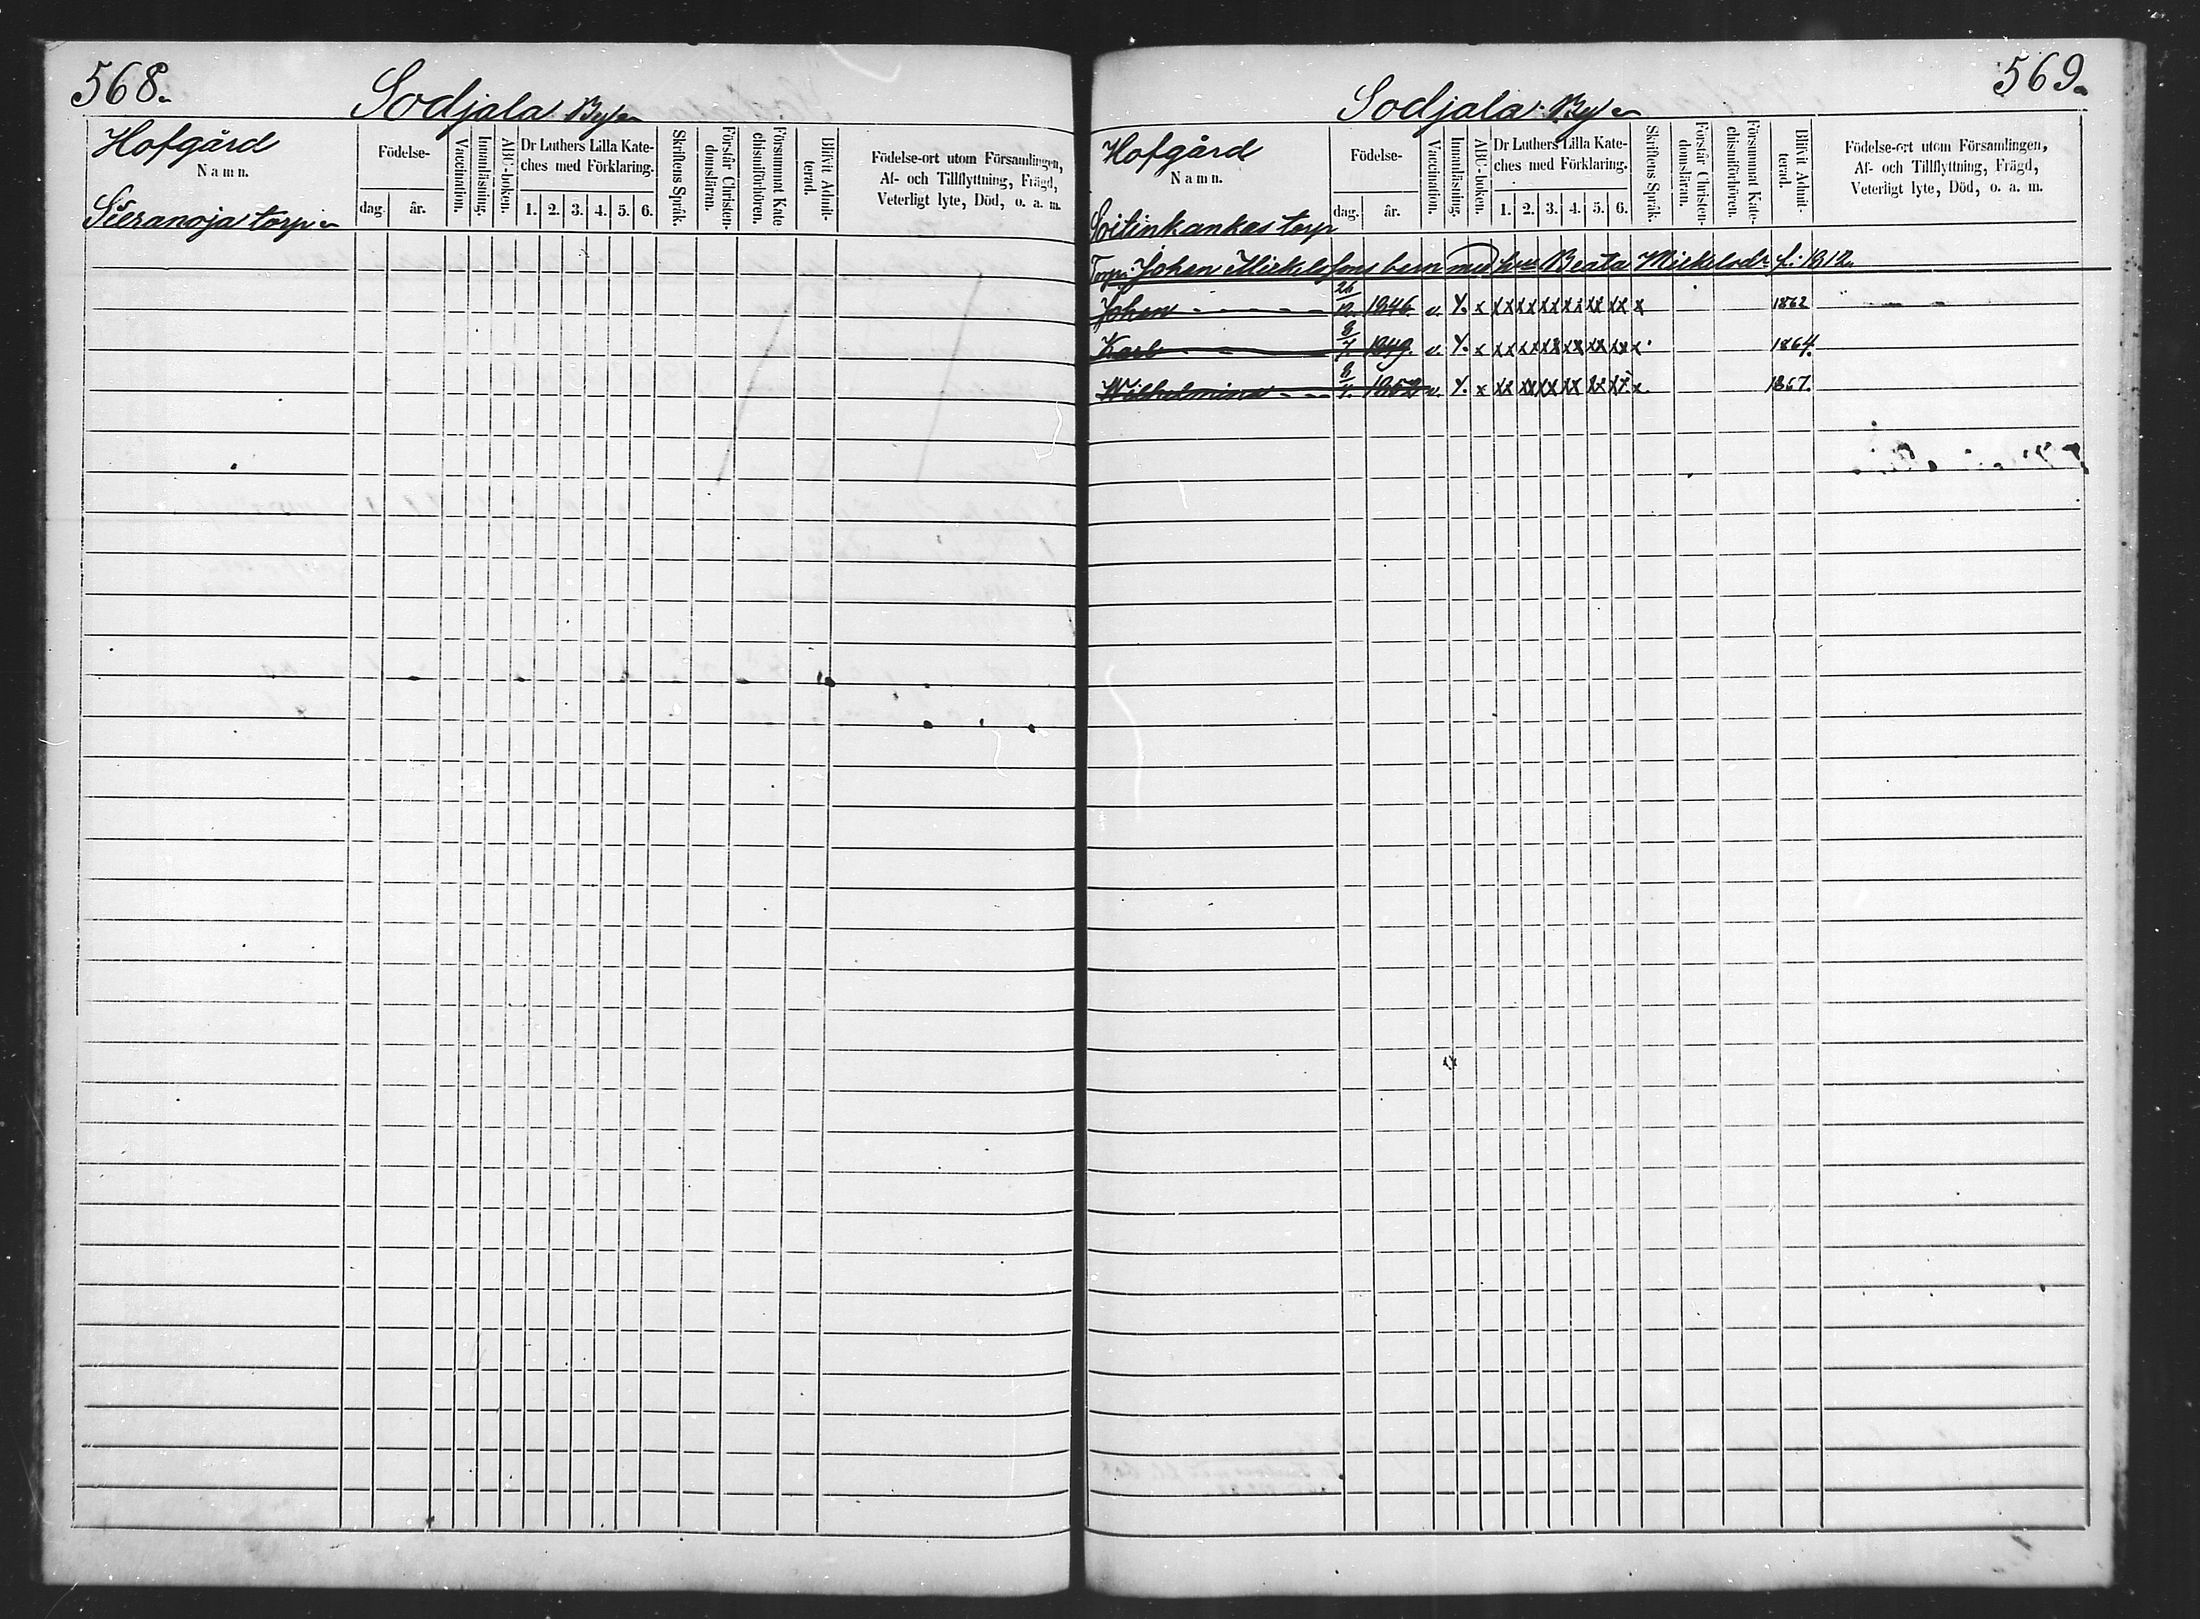 568.
Sodjala By
Hofgård
Namn.
Födelse-
dag. år.
Vaccination.
Innanläsning.
ABC-boken.
Dr Luthers Lilla Kate-
ches med Förklaring.
1. 2. 3. 4. 5. 6.
Skriftens Språk.
Förstår Christen-
domsläran.
Försummat Kate
chismiförhören.
Blifvit Admit-
terad.
Födelse-ort utom Församlingen,
Af- och Tillflyttning, Frägd,
Veterligt lyte, Död, o. a. m.
Sieranoja torp
569.
Sodjala By
Hofgård
Namn.
Födelse-
dag. år.
Vaccination.
Innanläsning.
ABC-boken.
Dr Luthers Lilla Kate-
ches med Förklaring.
1. 2. 3. 4. 5. 6.
Skriftens Språk.
Förstår Christen-
domsläran.
Försummat Kate-
chismiförhören.
Blifvit Admit-
terad.
Födelse-ort utom Församlingen,
Af- och Tillflyttning, Frägd,
Veterligt lyte, Död, o. a. m.
Soitinkankas torp
Torp. Johan Mickelssons barn med hu Beata Mickelsdr f. 1812.
Johan 26/12. 1846. v. x xx xx xx xx xx xx x 1862
Karl 8/7. 1849. v. x xx xx xx xx xx xx x 1864.
Wilhelmina 8/4. 1852 v. x xx xx xx xx xx xx x 1867.